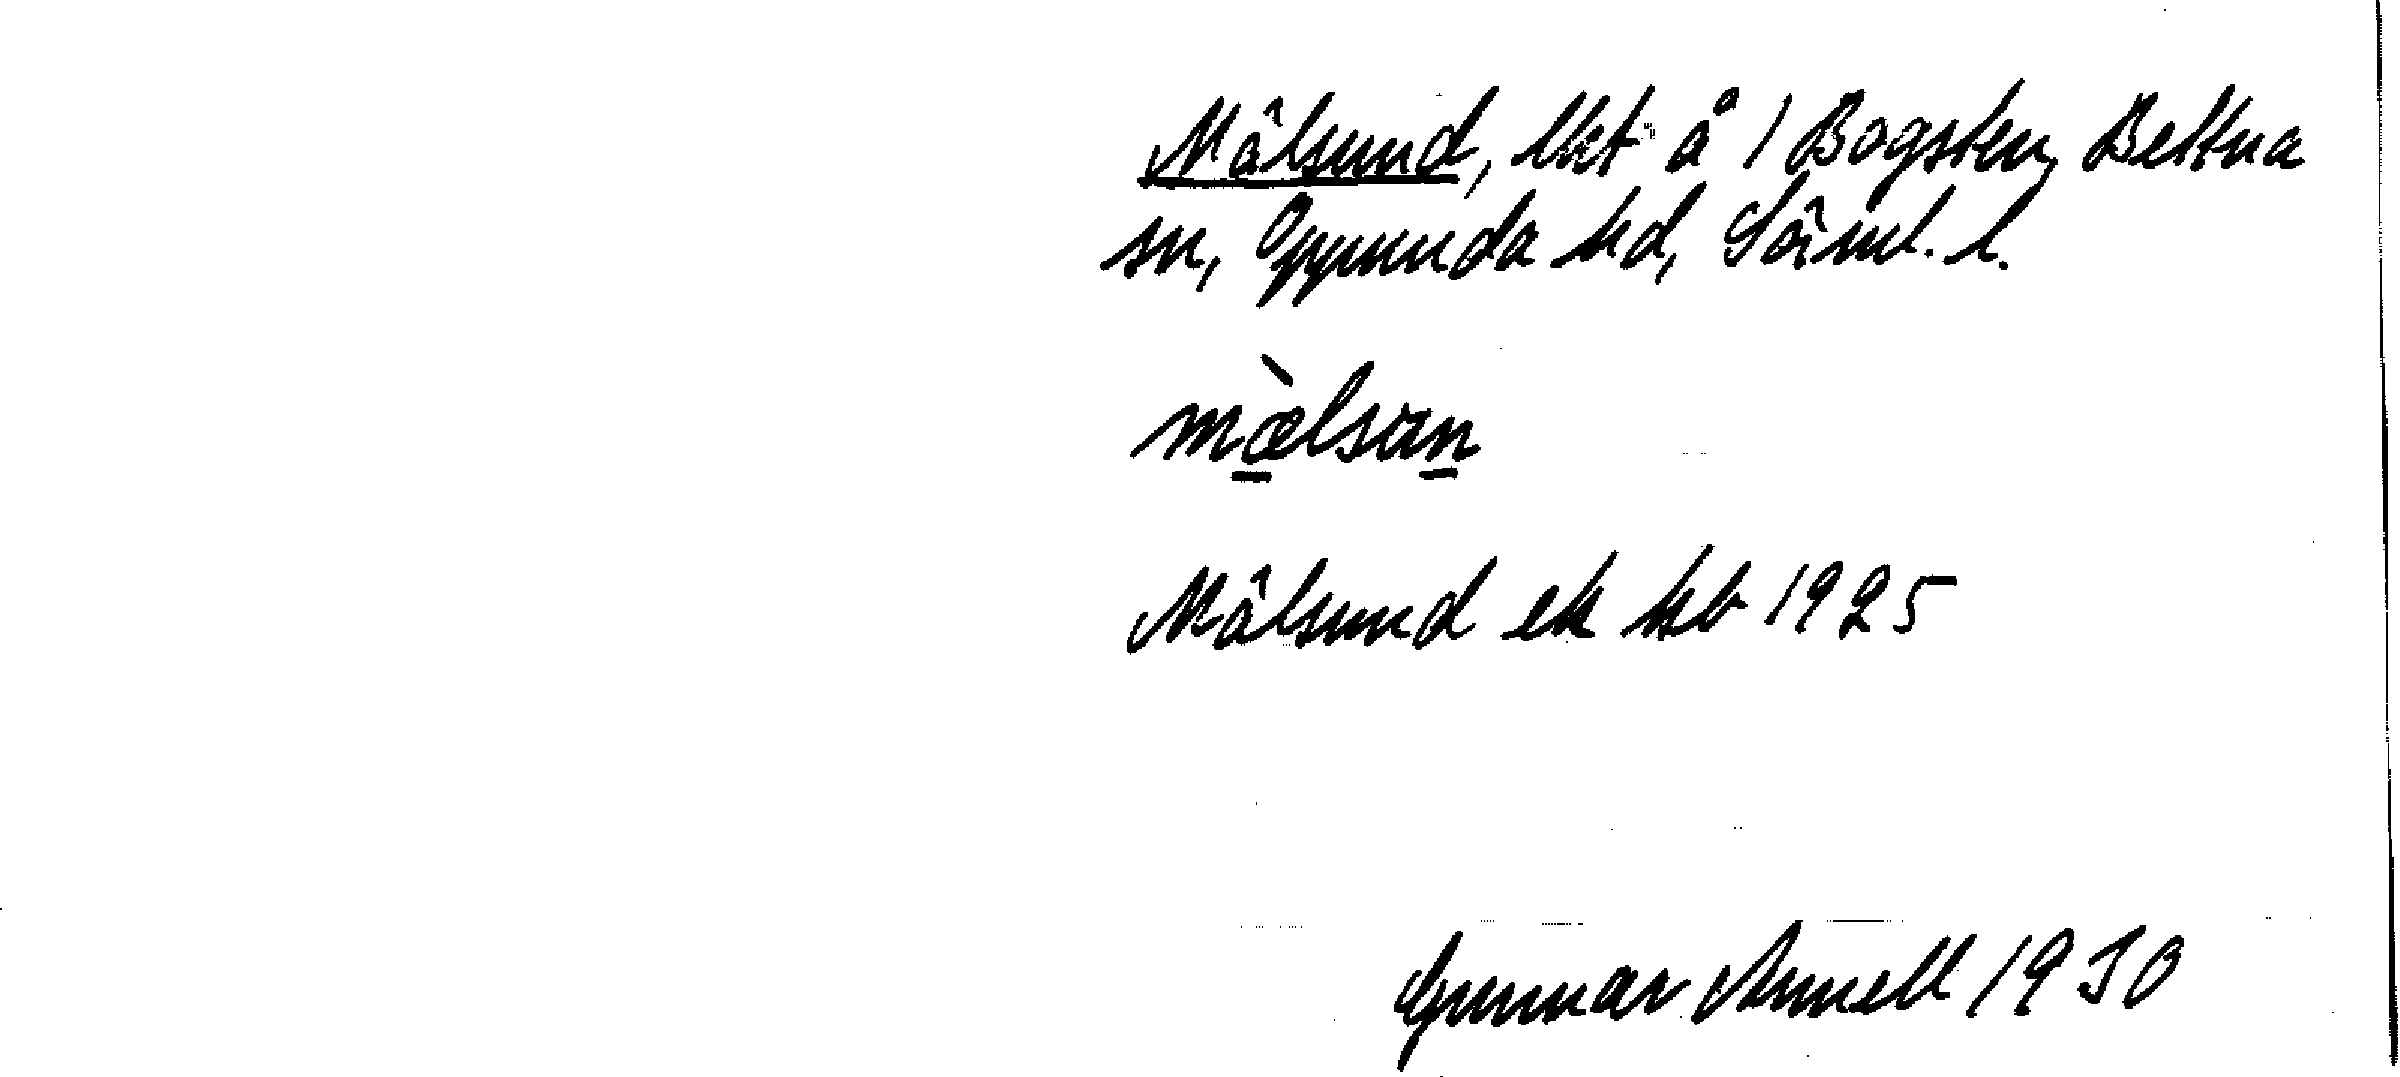 Målsund, lht å 1 Bogsten, Bettna
sn, Oppunda hd, Sörml. l.
mælsɷn
Målsund ek kb 1925
Gunnar Annell 1930